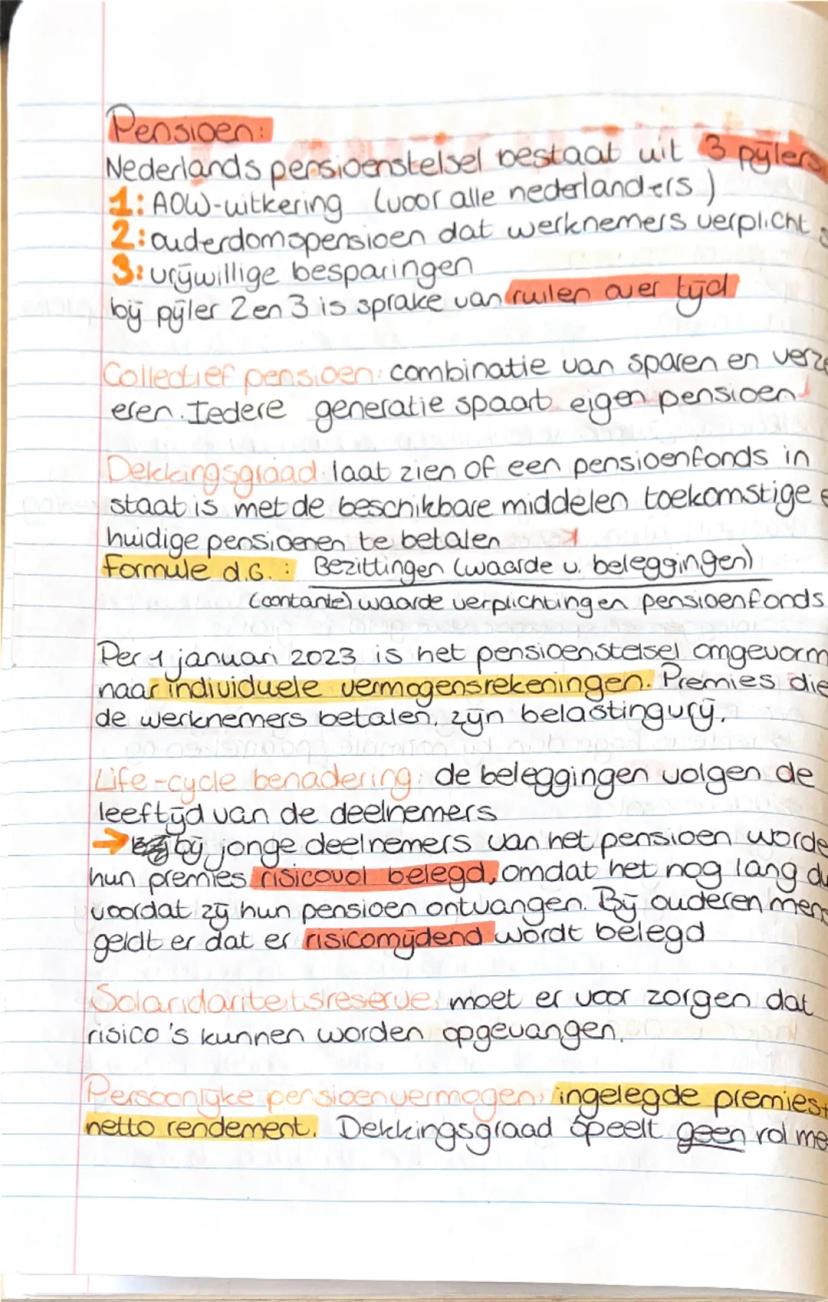 Pensioen:
Nederlands pensioenstelsel bestaat uit 3 pijlers
1: AOW-uitkering (voor alle nederlanders)
2: ouderdomspensioen dat werknemers verplicht
3: vrijwillige besparingen
bij pijler 2 en 3 is sprake van ruilen over tijd
Collectief pensioen: combinatie van sparen en verze
eren. Iedere generatie spaart eigen pensioen
Dekkingsgraad: laat zien of een pensioenfonds in
staat is met de beschikbare middelen toekomstige e
huidige pensioenen te betalen
Formule d.G.: Bezittingen (waarde v. beleggingen)
(contante) waarde verplichtingen pensioenfonds
Per 1 januari 2023 is het pensioenstelsel omgevorm
naar individuele vermogensrekeningen. Premies die
de werknemers betalen, zijn belastingvrij.
Life-cycle benadering: de beleggingen volgen de
leeftijd van de deelnemers
→ bij jonge deelnemers van het pensioen worde
hun premies risicovol belegd, omdat het nog lang du
voordat zij hun pensioen ontvangen. Bij ouderen men
geldt er dat er risicomijdend wordt belegd
Solaridariteitsreserve: moet er voor zorgen dat
risico's kunnen worden opgevangen.
Persoonlijke pensioenvermogen: ingelegde premies +
netto rendement. Dekkingsgraad speelt geen rol me